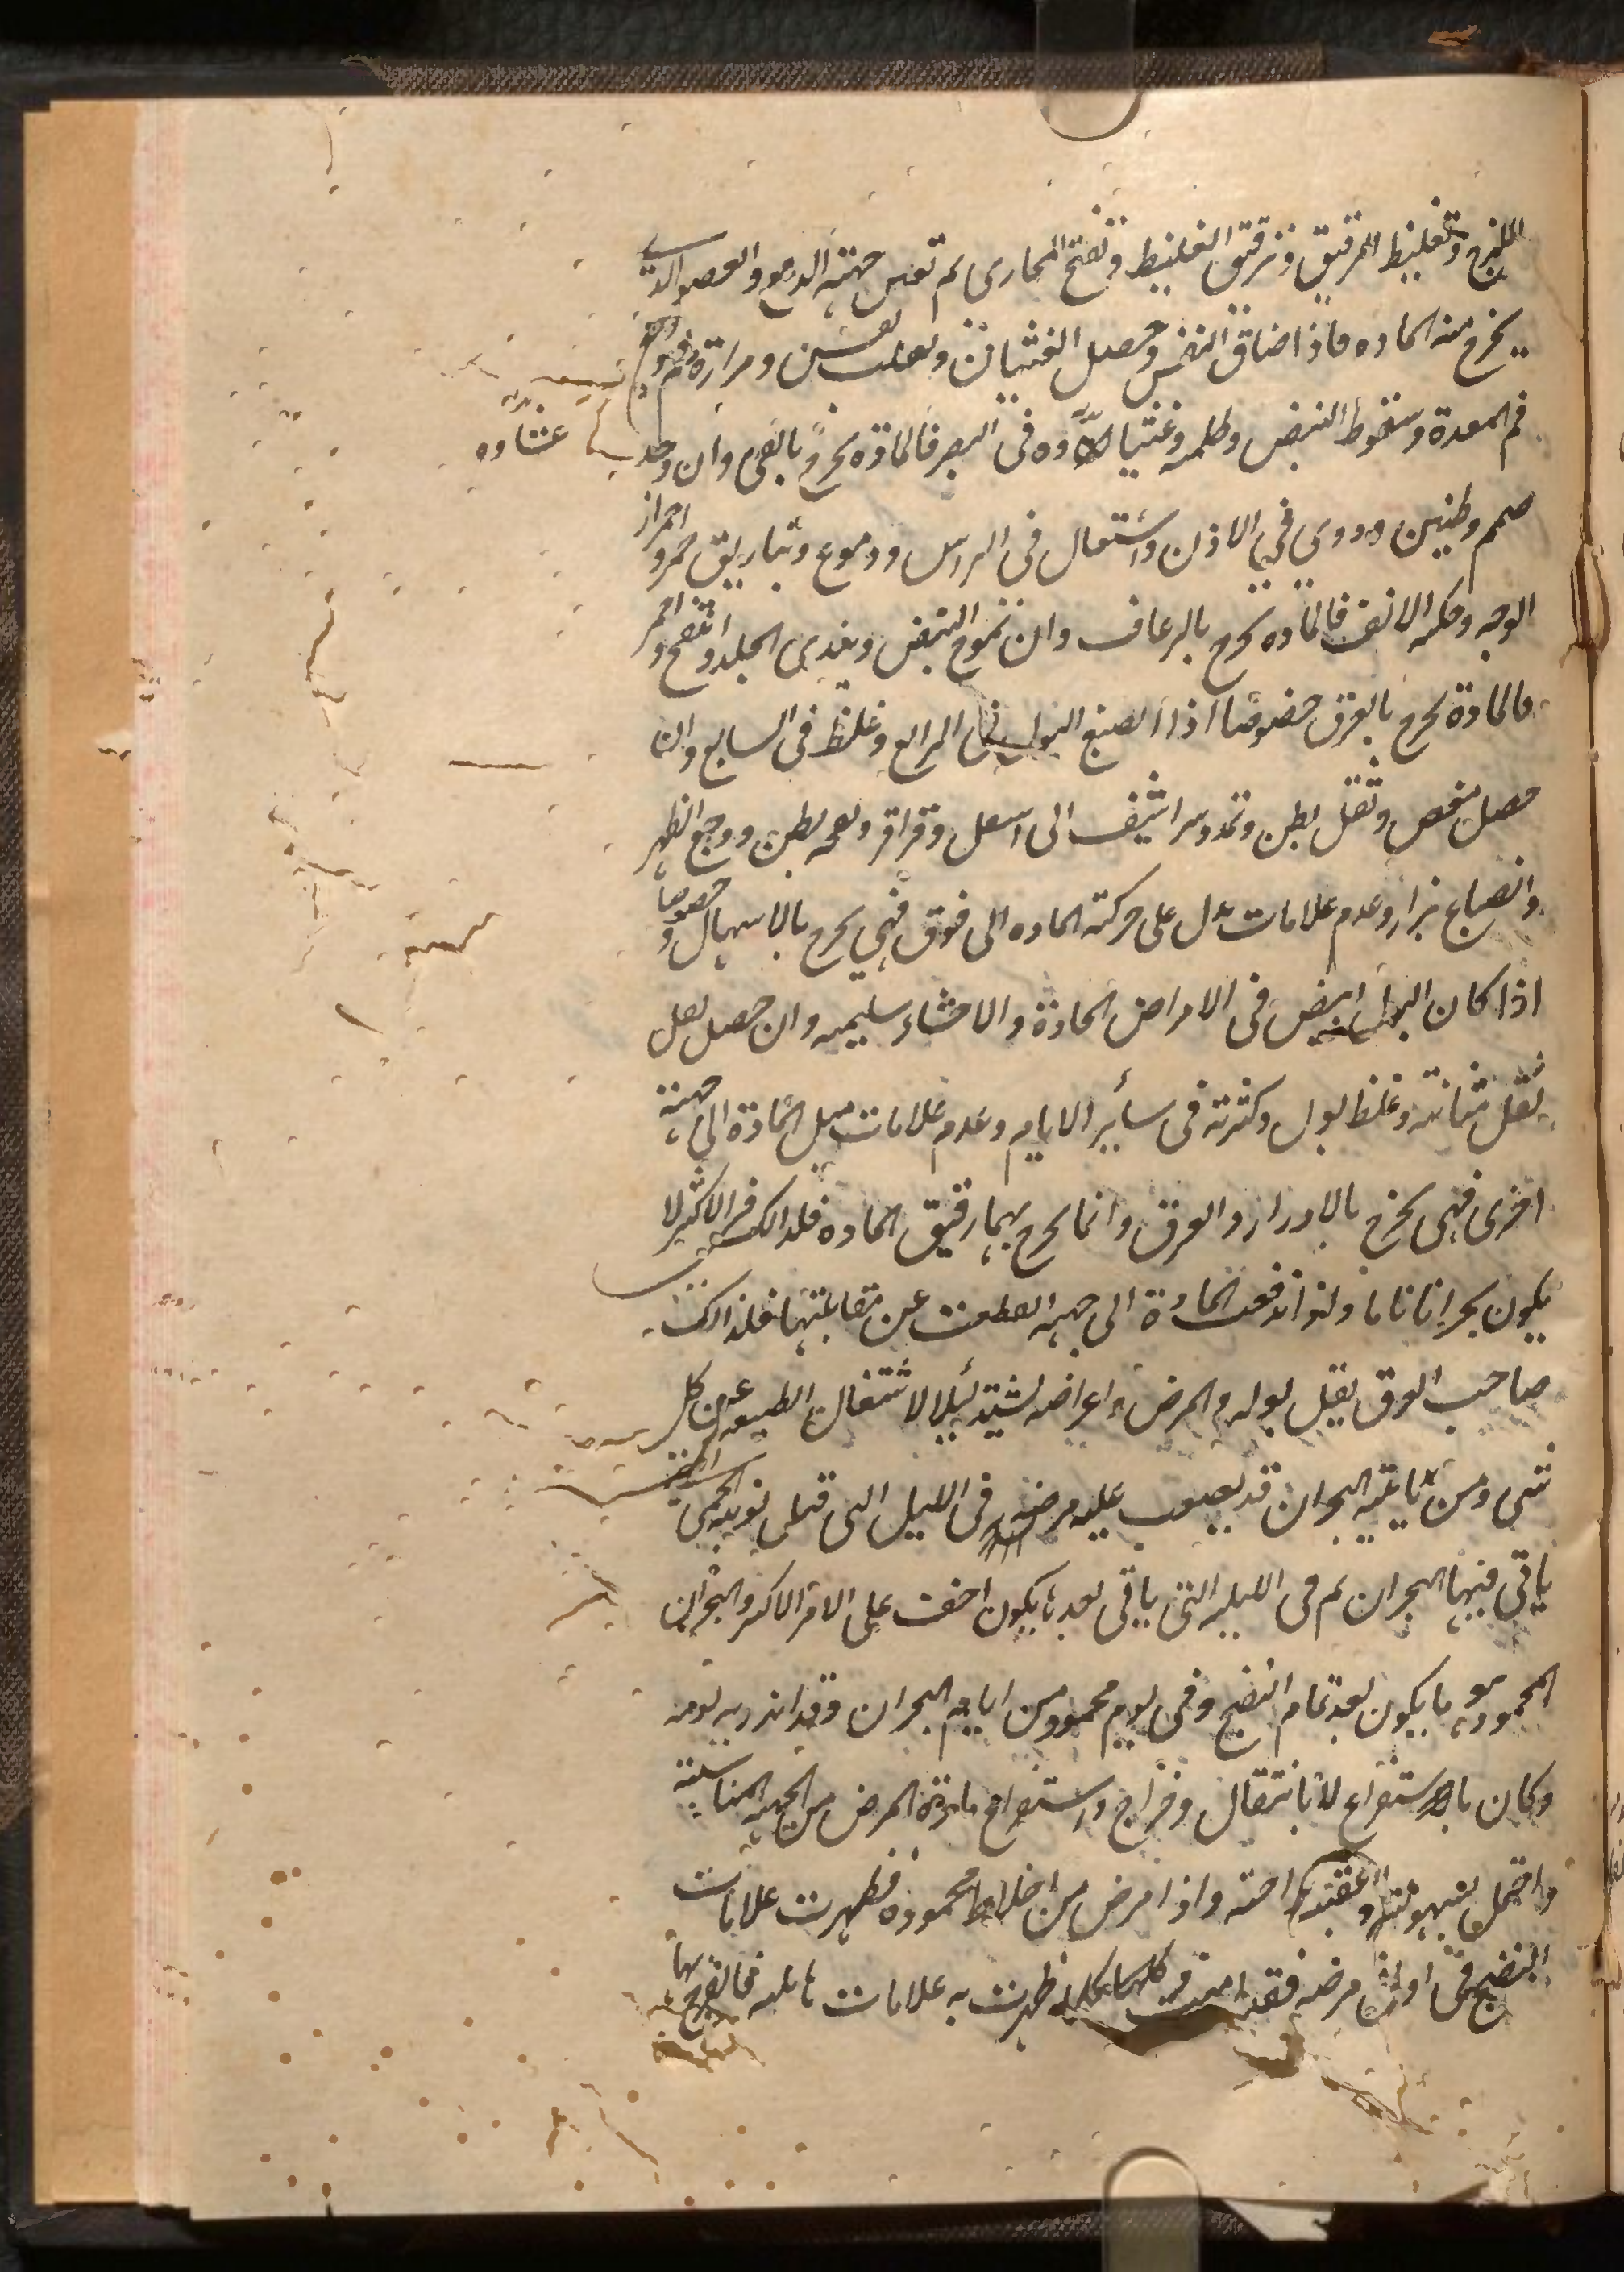 اللزج وتغليظ الرقيق وترقيق الغليظ وتفتح المجارى ثم تعين جهته الدفع والعضو الذى
يخرج منه الماده فاذا ضاق النفس وحصل الغثيان وتقلب نفس ومرارة فم ووجع
فم المعدة وسقوط النبض وظلمه وغشاوه فى البصر فالمادة تخرج بالقى وان وجد
غشاوه
صمم وطنين ودوى فى الاذن واشتعال فى الراس ودموع وتباريق حمر واحمرار
الوجه وحكه الانف فالماده تخرج بالرعاف وان تموج النبض وندى الجلد وانتفخ واحمر
فالمادة تخرج بالعرق خصوصا اذا انصبغ البول فى الرابع وغلظ فى السابع وان
حصل مغص وثقل بطن وتمدد شراشيف الى اسفل وقراقر ونفخه بطن ووجع الظهر
وانصباغ براز وعدم علامات تدل على حركة الماده الى فوق فهى تخرج بالاسهال وخصوصا
اذا كان البول ابيض فى الامراض الحادة والاحشاء سليمه وان حصل ثقل
ثقل مثانته وغلظ بول وكثرته فى سائر الايام وعدم علامات ميل المادة الى جهته
اخرى فهى تخرج بالادرار والعرق وانما يخرج بهما رقيق الماده فلذالك فى الاكثر لا
يكون بحرانا تاما ولو اندفعت المادة الى جهه انقطعت عن مقابلتها فلذالك
صاحب العرق يقل بوله والمرض واعراضه تشتد ليلا لاشتغال الطبيعه عن كل
شى ومن ياتيه البحران قد يصعب عليه مرضه فى الليل التى قبل نوبه الحمى التى
ياتى فيها البحران ثم فى الليله التى ياتى بعدها يكون اخف على الامر الاكثر والبحران
المحمود هو ما يكون بعد تمام النضج وفى يوم محمود من ايام البحران وقد انذر به يومه
وكان باستفراغ لا بانتقال وخراج واستفراغ مادة المرض من الجهه المناسبته
واحتمل بسهولته واعقبته راحته واذا مرض من اخلاط محموده فظهرت علامات
النضج فى اول مرضه فقد امنت كلما ظهرت به علامات هايله فخالفرح بها